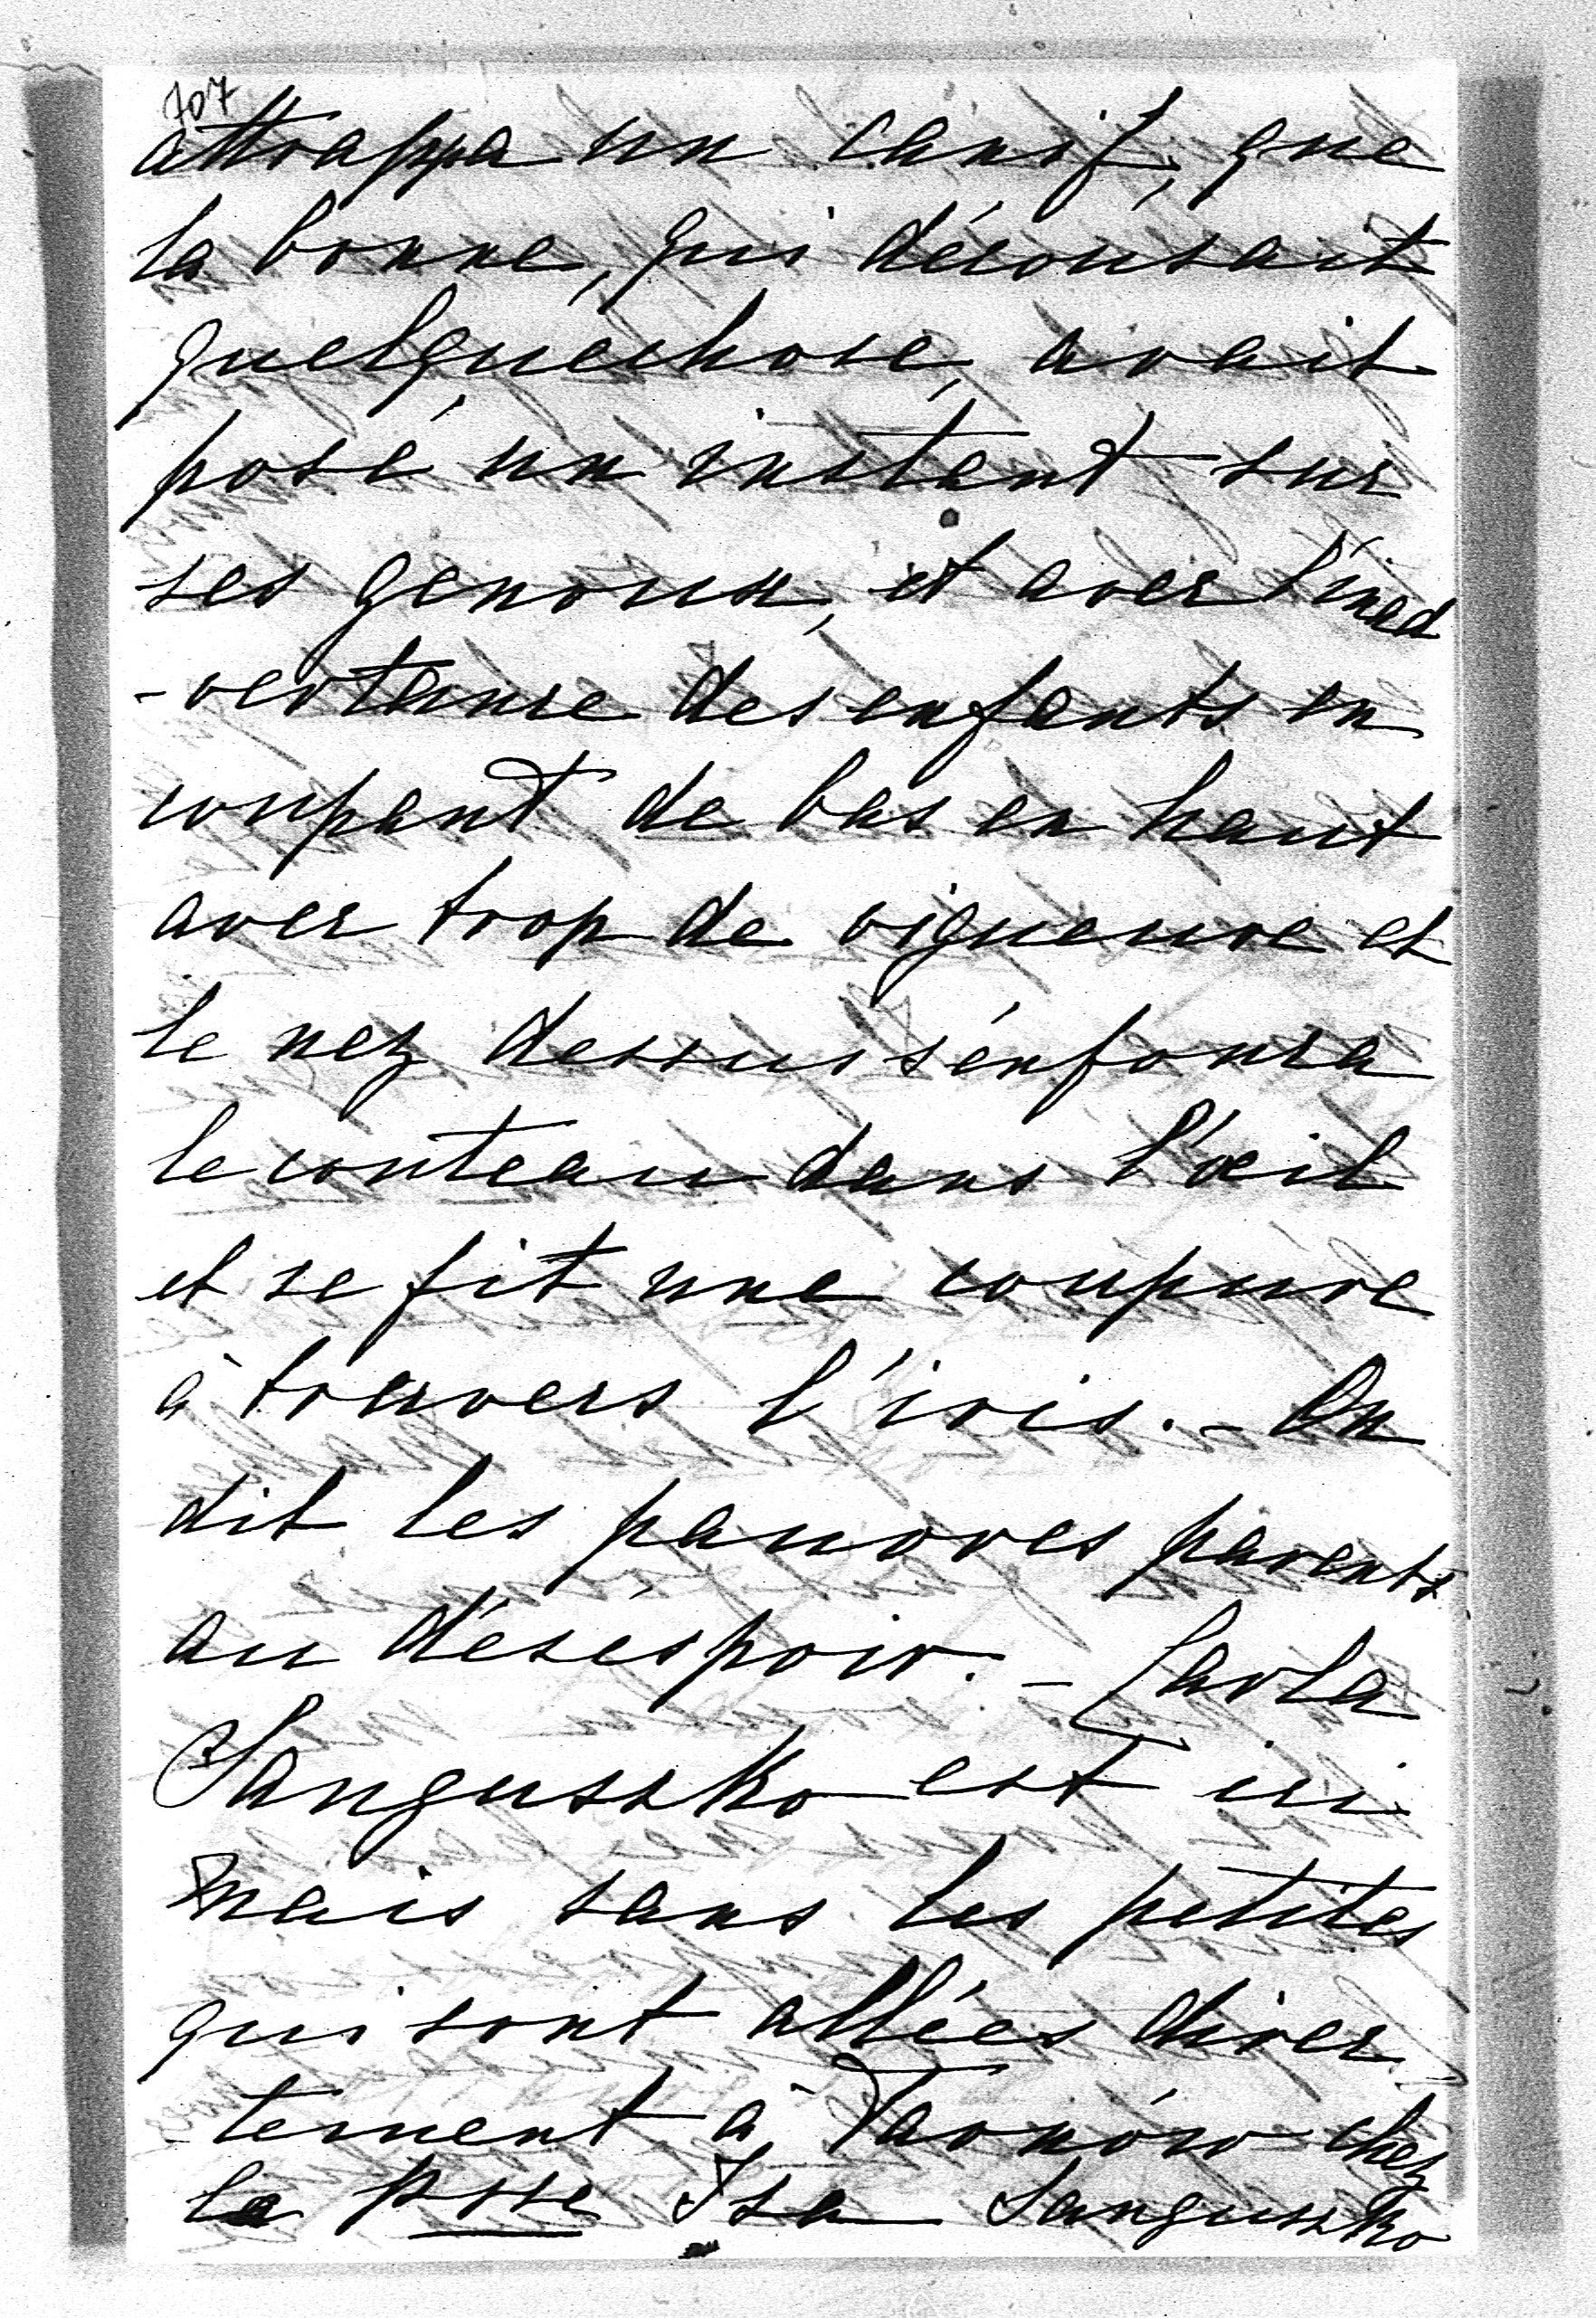 707
attrappa un canif, que
la bonne, qui décousait
quelquechose, avait
posé un instant sur
ses genoux, et avec l'inad
-vertance des enfants en
coupant de bas en haut
avec trop de vigueure et
le nez dessus s'enfonca
le couteau dans l'œil
et se fit une coupure
à travers l'iris. - On
dit les pauvres parents
au déséspoir. - Karla
Sanguszko est ici
mais sans les petites
qui sont allées direc
tement à Tarnów chez
la psse Isa Sanguszko